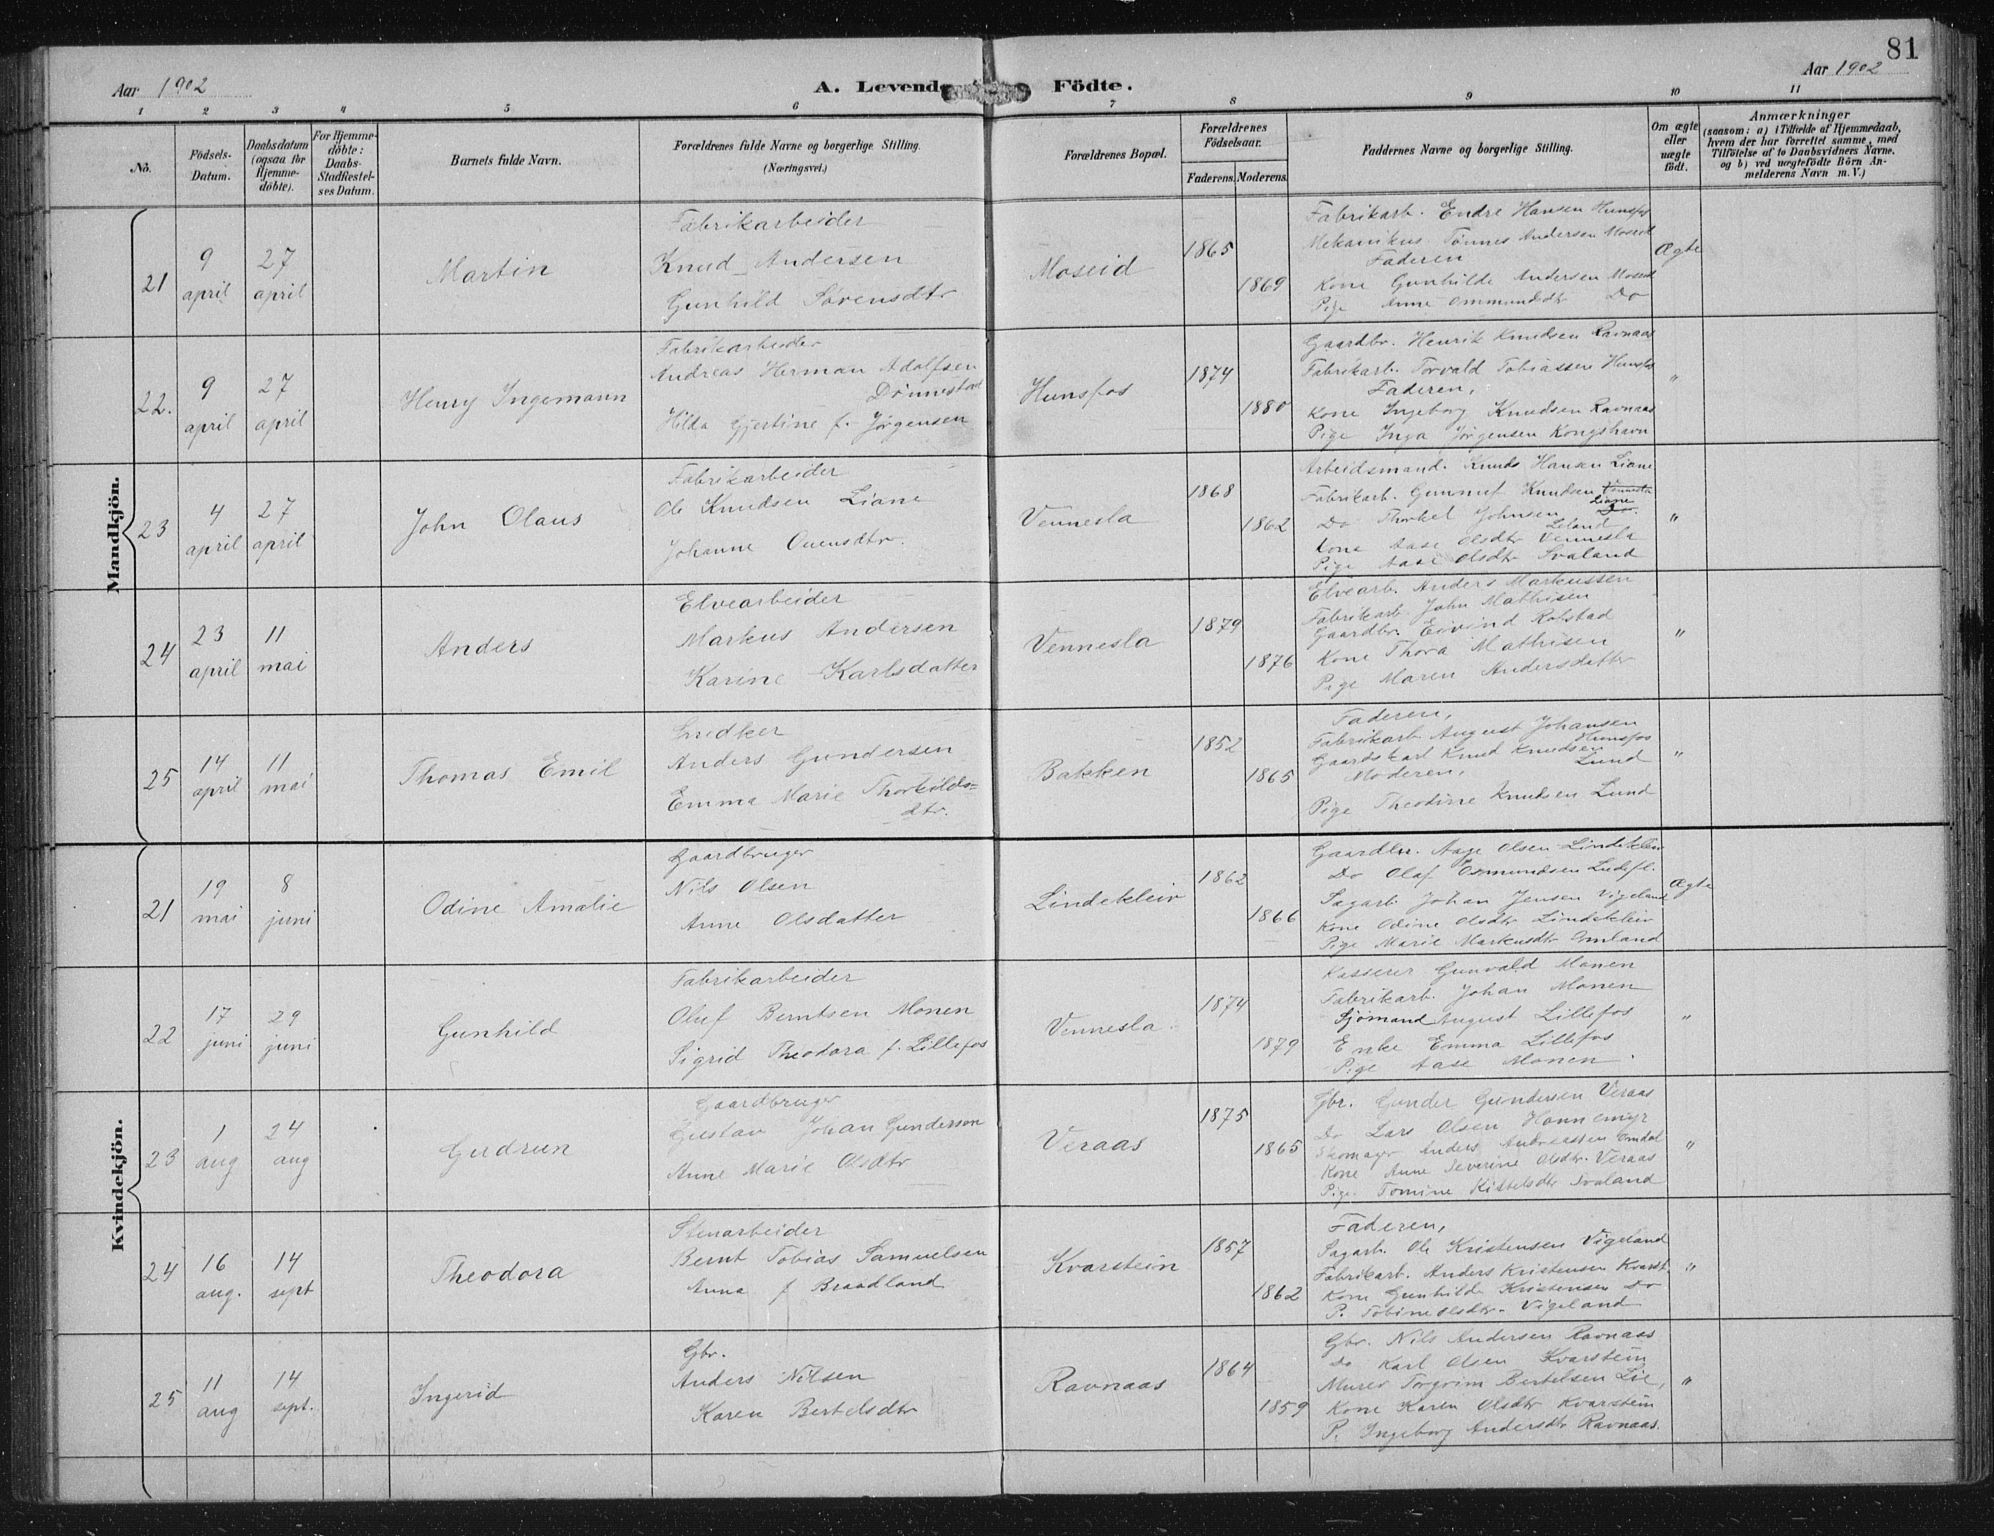 81
Aar 1902
A. Levende Födte.
Aar 1902
1 2 3 4 5 6 7 8 9 10 11
No.
Födsels-Datum.
Daabsdatum (ogsaa for Hjemme-döbte).
For Hjemme-döbte: Daabs-Stadfestel-ses Datum.
Barnets fulde Navn.
Forældrenes fulde Navne og borgerlige Stilling.
(Næringsvei.)
Forældrenes Bopæl.
Forældrenes Födselsaar.
Faderens. Moderens.
Faddernes Navne og borgerlige Stilling.
Om ægte eller uægte födt.
Anmærkninger
(saasom: a) i Tilfælde af Hjemmedaab,
hvem der har forrettet samme, med
Tilföielse af to Daabsvidners Navne.
og b) ved uægtefödte Börn An-
melderens Navn m. V.)
Mandkjön.
21
9 april
27 april
Martin
Fabrikarbeider
Knud Andersen
Gunhild Sørensdtr
Moseid
1865
1869
Fabrikarb. Endre Hansen Hunsfos
Mekanikus Tønnes Andersen Moseid
Faderen
Kone Gunhilde Andersen Moseid
Pige Anne Ommundsdtr Do
Ægte
22.
9 april
27 april
Henry Ingemann
Fabrikarbeider
Andreas Herman Adolfsen
Dønnestad
Hilda Gjertine f. Jørgensen
Hunsfos
1874
1880
Gaardbr. Henrik Knudsen Ravnaas
Fabrikarb. Torvald Tobiassen Hunsfos
Faderen,
Kone Ingeborg Knudsen Ravnaas
Pige Inga Jørgensen Kongshavn
"
23
4 april
27 april
John Olaus
Fabrikarbeider
Ole Knudsen Liane
Johanne Ovensdtr.
Vennesla
1868
1862
Arbeidsmand. Knuds Hansen Liane
Fabrikarb. Gunnuf Knudsen Vennesla
Liane
Do Thorkel Johnsen Do.
Leland
Kona Aase Olsdtr Vennesla
Pige Aase Olsdtr Svaland
"
24
23 april
11 mai
Anders
Elvearbeider
Markus Andersen
Karine Karlsdatter
Vennesla
1879
1876
Elvearb. Anders Markussen
Fabrikarb. John Mathisen
Gaardbr. Eivind Robstad
Kone Thora Mathisen
Pige Maren Andersdatter
"
25
14 april
11 mai
Thomas Emil
Snedker
Anders Gundersen
Emma Marie Thorkilds=
dtr.
Bakken
1852
1865
Faderen,
Fabrikarb. August Johansen
Hunsfos
Gaardskarl Knud Knudsen
Lund
Moderen,
Pige Theodine Knudsen Lund
"
Kvindekjön.
21
19 mai
8 juni
Odine Amalie
Gaardbruger
Nils Olsen
Anne Olsdatter
Lindekleiv
1862
1866
Gaardbr. Aage Olsen Lindekleiv
Do Olaf Osmundsen
Sagarb. Johan Jensen Vigeland
Kone Odine Olsdtr Lindekleiv
Pige Marie Markusdtr Omland
Ægte
22
17 juni
29 juni
Gunhild
Fabrikarbeider
Oluf Berntsen Monen
Sigrid Theodora f. Lillefos
Vennesla.
1874
1879
Kasserer Gunvald Monen
Fabrikarb. Johan Monen
Sjømand August Lillefos
Enke Emma Lillefos
Pige Aase Monen.
"
23
1 aug
24 aug
Gudrun
Gaardbruger
Gustav Johan Gunderson
Anne Marie Olsdtr
Veraas
1875
1865
Gbr. Gunder Gundersen Veraas
Do Lars Olsen Honnemyr
Skomager Anders Andreassen Omdal
Kone Anne Severine Olsdtr. Veraas
Pige Tomine Kittelsdtr Svaland
"
24
16 aug.
14 sept
Theodora
Stenarbeider
Bernt Tobias Samuelsen
Anna f Braadland
Kvarstein
1857
1862
Faderen,
Sagarb. Ole Kristensen Vigeland
Fabrikarb. Anders Kristensen Kvarst.
Kone Gunhilde Kristensen Do
P. Tobine Olsdtr. Vigeland
"
25
11 aug
14 sept.
Ingerid
Gbr.
Anders Nilsen
Karen Bertelsdtr
Ravnaas
1864
1859
Gbr. Nils Andersen Ravnaas
Do Karl Olsen Kvarstein
Murer Torgrim Bertelsen Lie,
Kone Karen Olsdtr Kvarstein
P. Ingeborg Andersdtr Ravnaas.
"